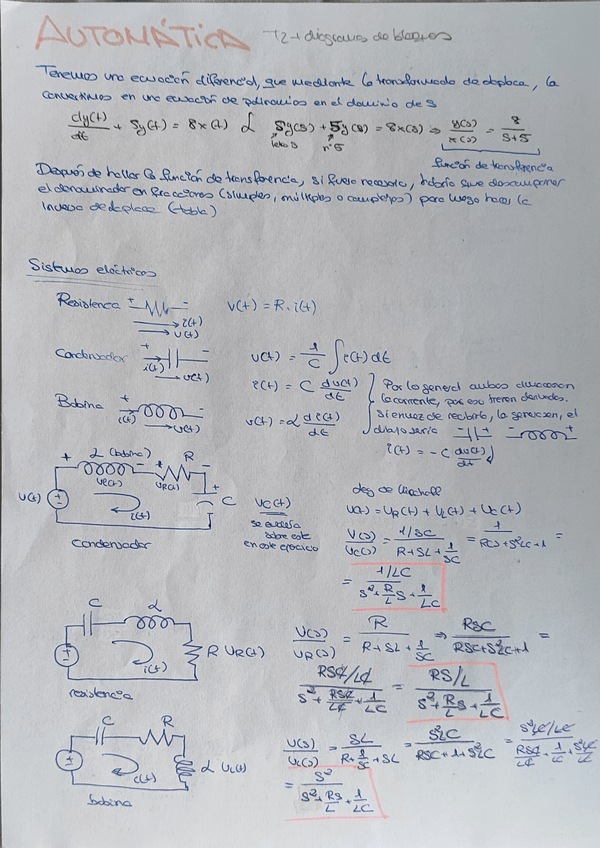 AUTOMÁTICA T2 → diagrama de bloques
Tenemos una ecuación diferencial, que mediante la transformada de laplace, la
convertimos en una ecuación de polinomios en el dominio de s
dy(t)/dt + 5y(t) = 8x(t) ℒ sy(s) + 5y(s) = 8x(s) ⇒ y(s)/x(s) = 8/(s+5)
letra s nº 5 función de transferencia
Después de hallar la función de transferencia, si fuese necesario, habría que descomponer
el denominador en fracciones (simples, múltiples o complejos) para luego hacer la
inversa de laplace (tabla)
Sistemas eléctricos
Resistencia + - i(t) v(t) v(t) = R. i(t)
Condensador + - i(t) v(t) v(t) = 1/C ∫ i(t) dt
i(t) = C dv(t)/dt
Bobina + - i(t) v(t) v(t) = L di(t)/dt
Por lo general ambos almacenan
la corriente, por eso tienen derivadas.
Si en vez de recibirlo, la generasen, el
dibujo sería - + - +
i(t) = -C dv(t)/dt
+ L (bobina) - + R - + C -
v(t) vL(t) vR(t) i(t)
condensador
vC(t)
se evalúa
sobre este
en este ejercicio
ley de Kirchoff
v(t) = vR(t) + vL(t) + vC(t)
V(s)/VC(s) = (1/SC)/(R+SL+1/SC) = 1/(RCS+S²LC+1) =
= (1/LC)/(S²+R/L S+1/LC)
C L R VR(t) i(t)
resistencia
V(s)/VR(s) = R/(R+SL+1/SC) ⇒ RSC/(RSC+S²LC+1) =
(RSC/LC)/(S²+RSC/LC+1/LC) = (RS/L)/(S²+R/L S+1/LC)
C R L VL(t) i(t)
bobina
V(s)/VL(s) = SL/(R+1/SC+SL) = S²LC/(RSC+1+S²LC) = (S²LC/LC)/(RSC/LC+1/LC+S²LC/LC)
= S²/(S²+RS/L+1/LC)